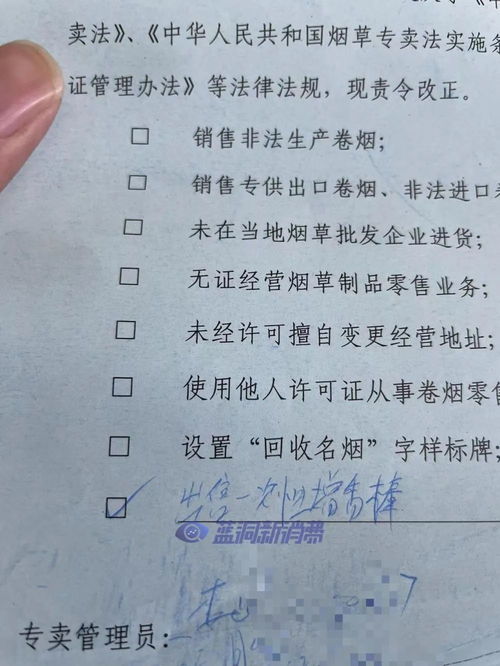 卖法》、《中华人民共和国烟草专卖法实施条
证管理办法》等法律法规，现责令改正。
□ 销售非法生产卷烟；
□ 销售专供出口卷烟、非法进口卷
□ 未在当地烟草批发企业进货；
□ 无证经营烟草制品零售业务；
□ 未经许可擅自变更经营地址；
□ 使用他人许可证从事卷烟零售
□ 设置“回收名烟”字样标牌；
☑ 出售一次性增香棒
蓝洞新消费
专卖管理员：